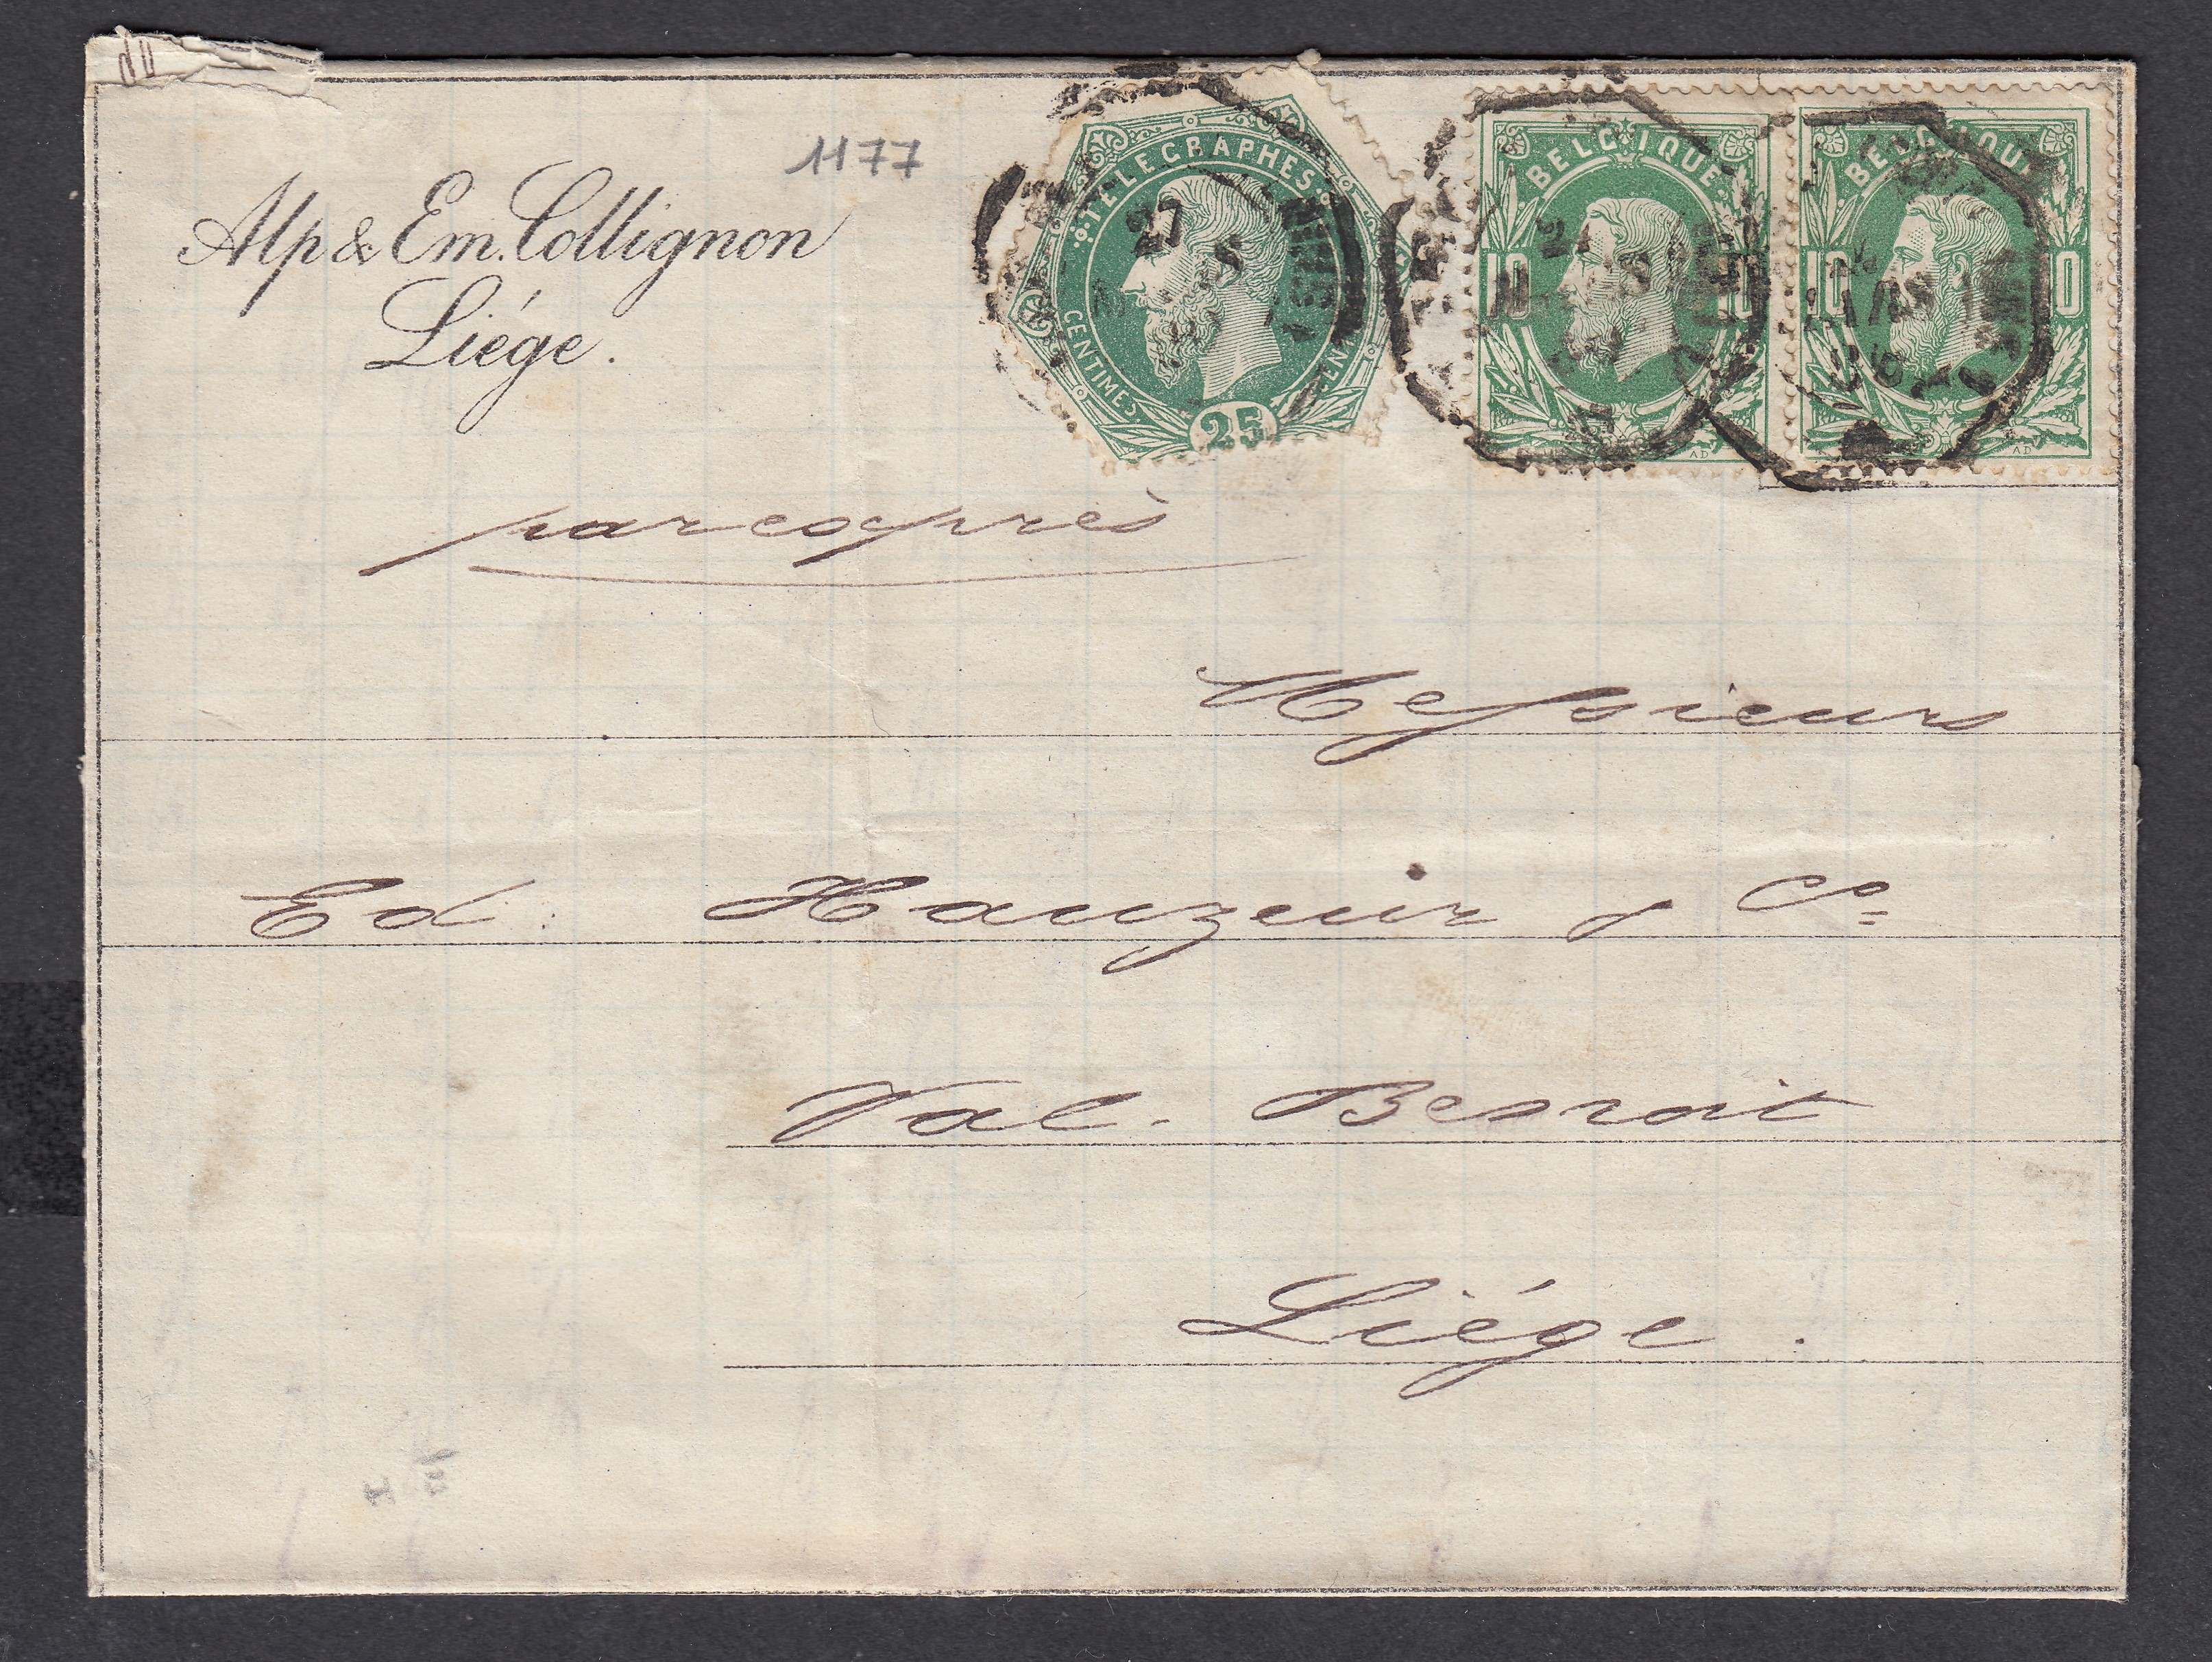 1177
Alp & Em. Collignon
Liége.
TELEGRAPHES
CENTIMES
25
27
BELGIQUE
10 10
BELGIQUE
10 10
par exprès
Messieurs
Ed: Hauzeur & Cie
Val-Benoit
Liége.